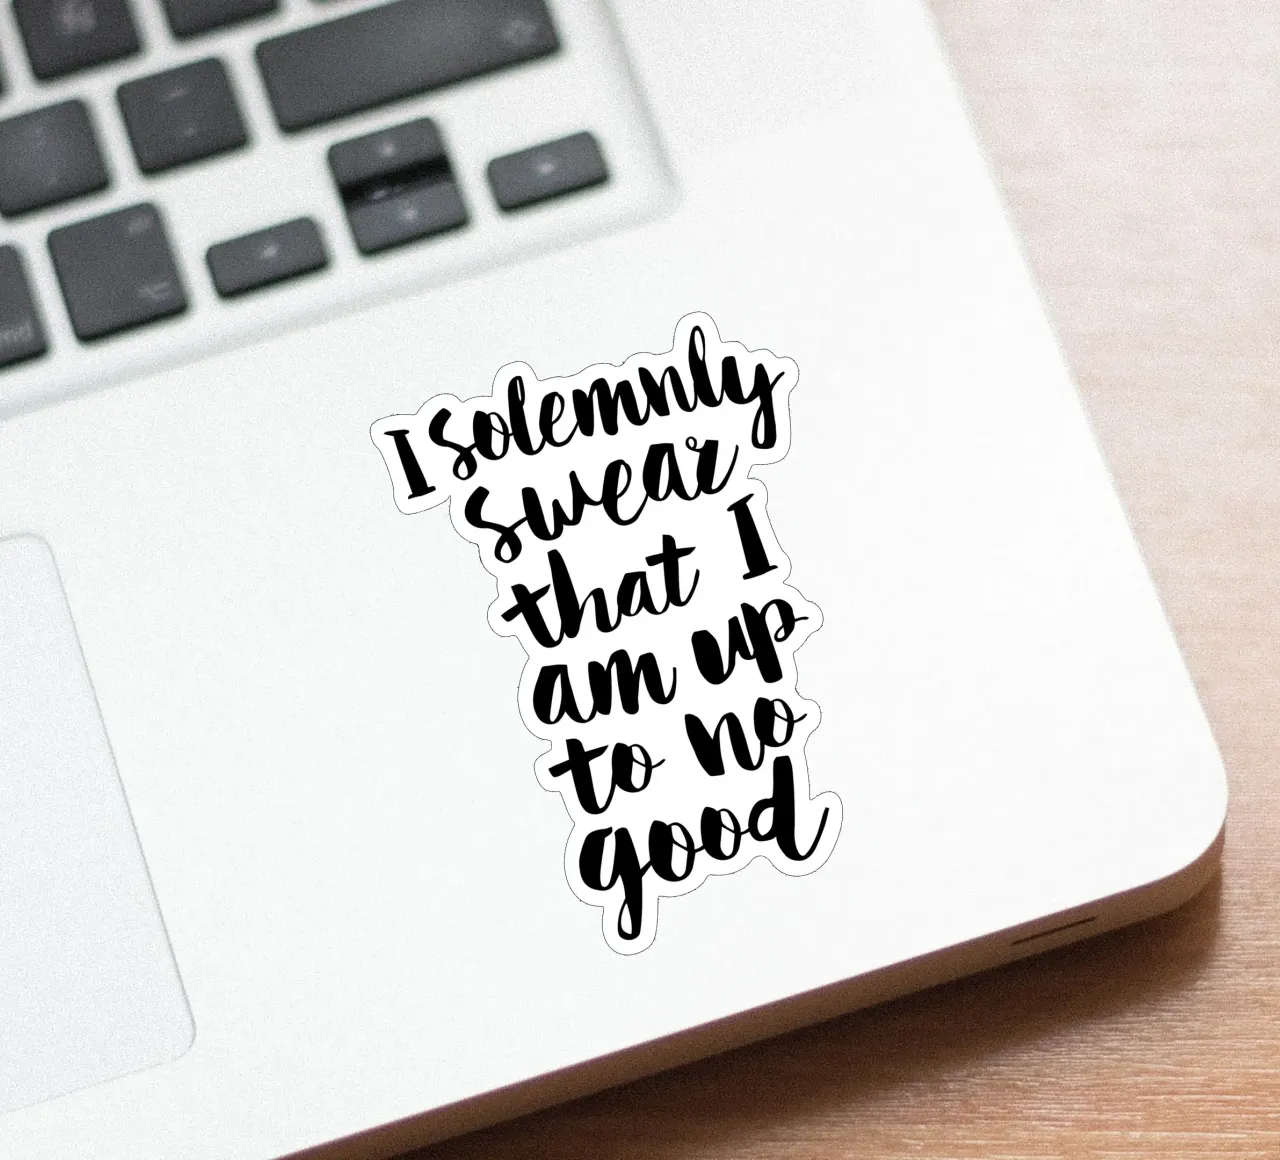 I solemnly
swear
that I
am up
to no
good